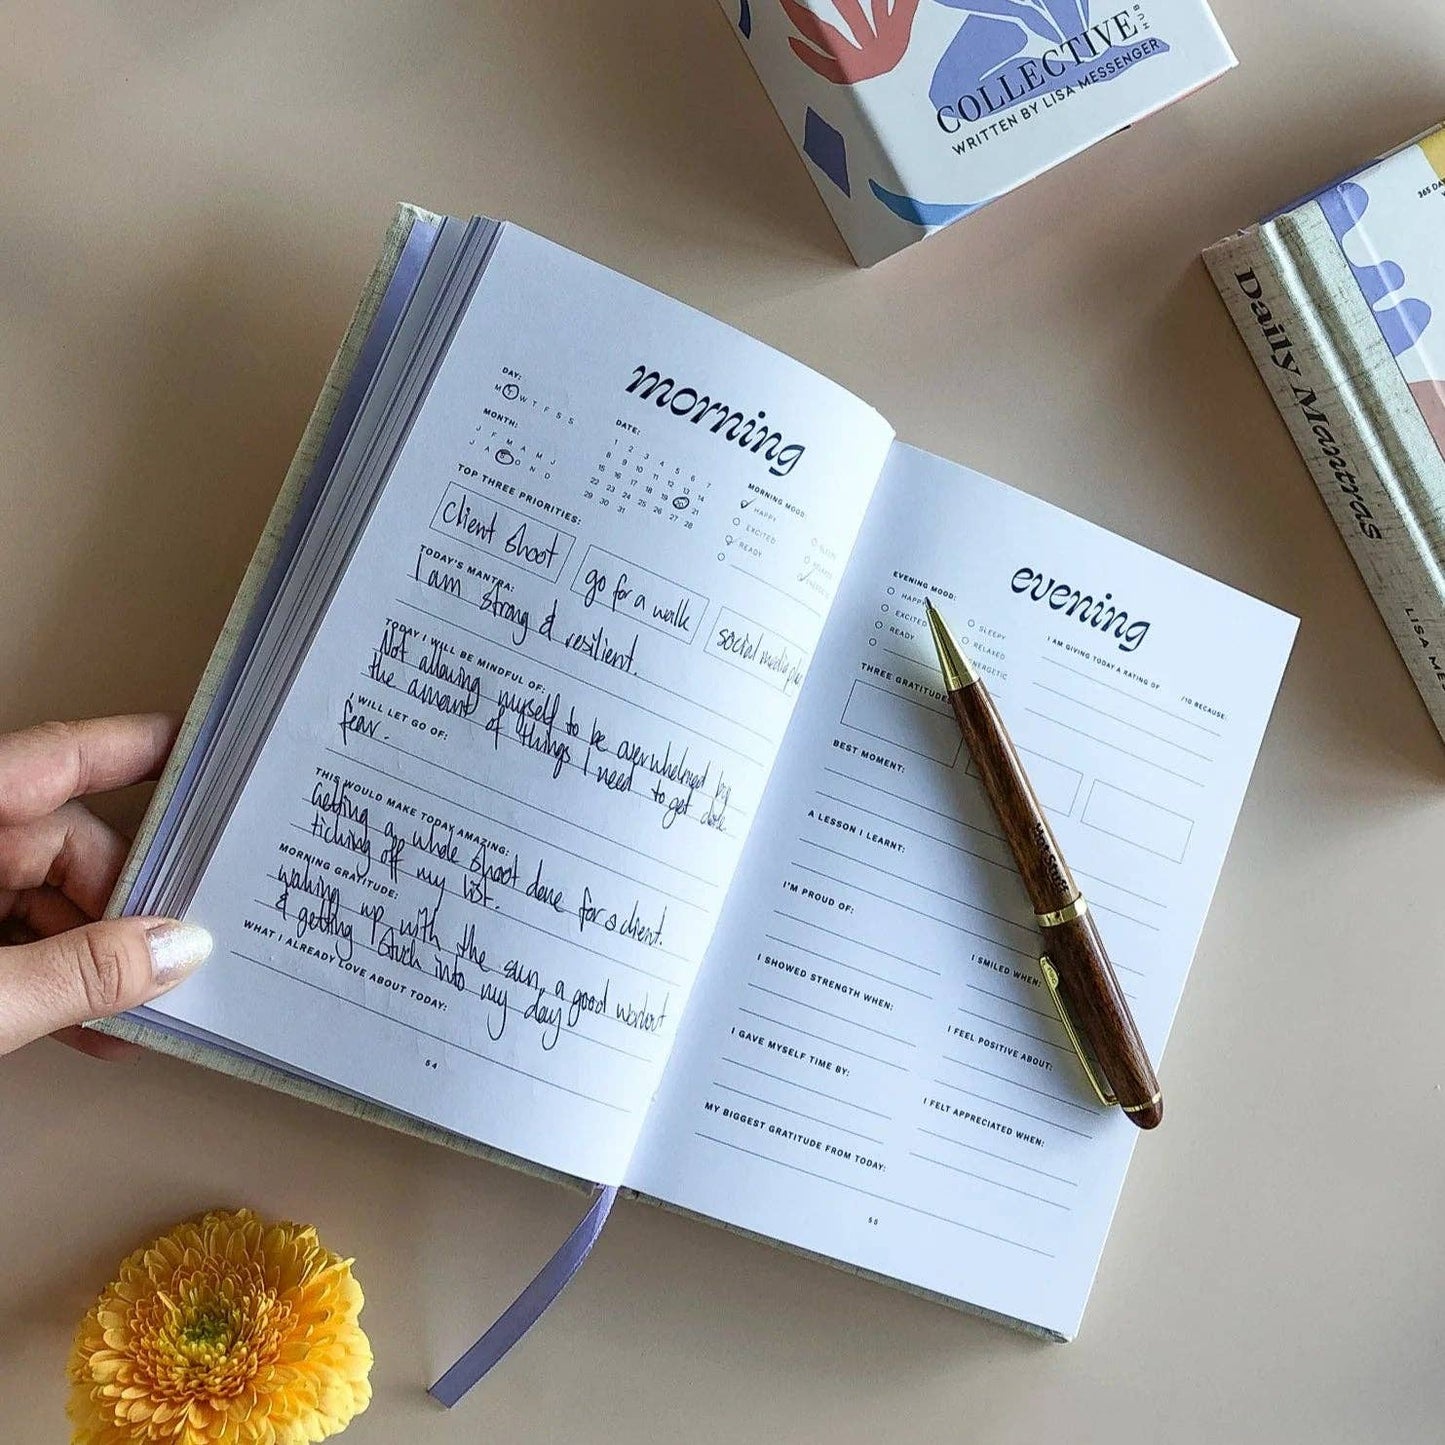 COLLECTIVE HUB
WRITTEN BY LISA MESSENGER
365 DAY
Daily Mantras
LISA ME
morning
DAY:
M T W T F S S
MONTH:
J F M A M J
J A S O N D
DATE:
1 2 3 4 5 6 7
8 9 10 11 12 13 14
15 16 17 18 19 20 21
22 23 24 25 26 27 28
29 30 31
MORNING MOOD:
HAPPY
EXCITED
READY
SLEEPY
TOP THREE PRIORITIES:
client shoot
go for a walk
social media
TODAY'S MANTRA:
I am strong & resilient.
TODAY I WILL BE MINDFUL OF:
Not allowing myself to be overwhelmed by
the amount of things I need to get done
I WILL LET GO OF:
fear.
THIS WOULD MAKE TODAY AMAZING:
Getting a whole shoot done for a client.
ticking off my list.
MORNING GRATITUDE:
waking up with the sun, a good workout
& getting stuck into my day
WHAT I ALREADY LOVE ABOUT TODAY:
54
evening
EVENING MOOD:
HAPPY
EXCITED
READY
SLEEPY
RELAXED
ENERGETIC
I AM GIVING TODAY A RATING OF /10 BECAUSE:
THREE GRATITUDE
BEST MOMENT:
A LESSON I LEARNT:
I'M PROUD OF:
I SMILED WHEN:
I SHOWED STRENGTH WHEN:
I FEEL POSITIVE ABOUT:
I GAVE MYSELF TIME BY:
I FELT APPRECIATED WHEN:
MY BIGGEST GRATITUDE FROM TODAY:
55